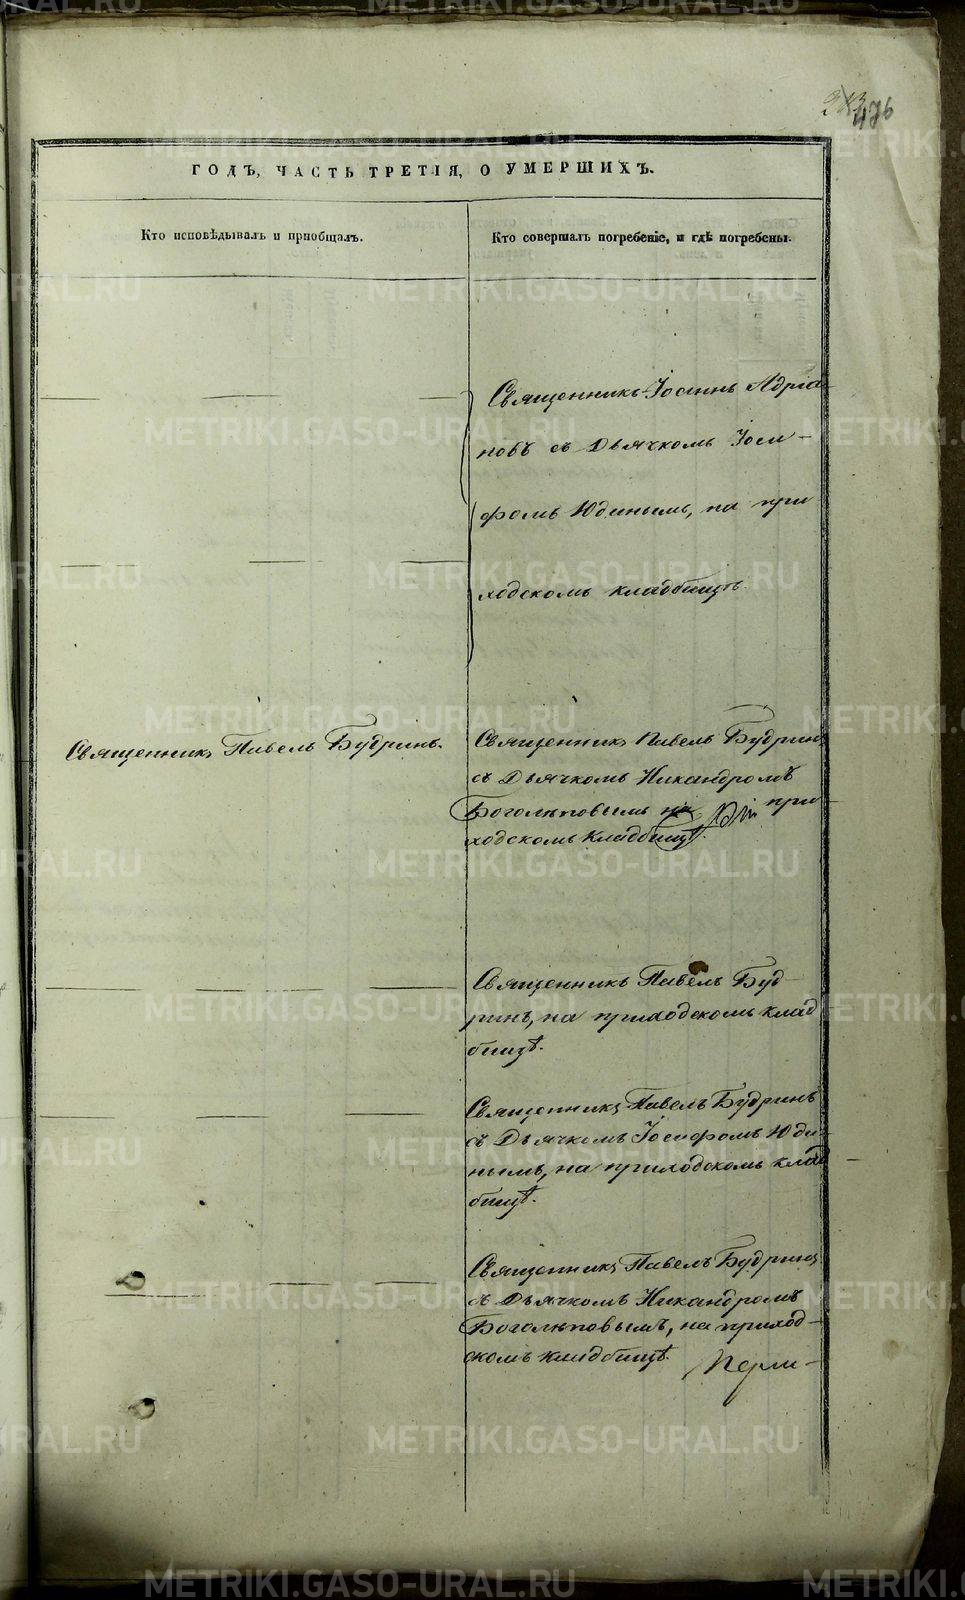 476
ГОДЪ, ЧАСТЬ ТРЕТІЯ, О УМЕРШИХЪ.
Кто исповѣдывалъ и пріобщалъ.
Кто совершалъ погребеніе, и гдѣ погребены.
Священникъ Іоаннъ Адріа-
новъ съ Дьячкомъ Іоси-
фомъ Юдинымъ, на при
ходскомъ кладбищѣ.
Священникъ Павелъ Будринъ.
Священникъ Павелъ Будринъ
съ Дьячкомъ Никандромъ
Боголѣповымъ на при-
ходскомъ кладбищѣ.
Священникъ Павелъ Буд-
ринъ, на приходскомъ клад
бищѣ.
Священникъ Павелъ Будринъ
съ Дьячкомъ Іосифомъ Юди-
нымъ, на приходскомъ клад
бищѣ.
Священникъ Павелъ Будринъ
съ Дьячкомъ Никандромъ
Боголѣповымъ, на приход-
скомъ кладбищѣ.
METRIKI.GASO-URAL.RU